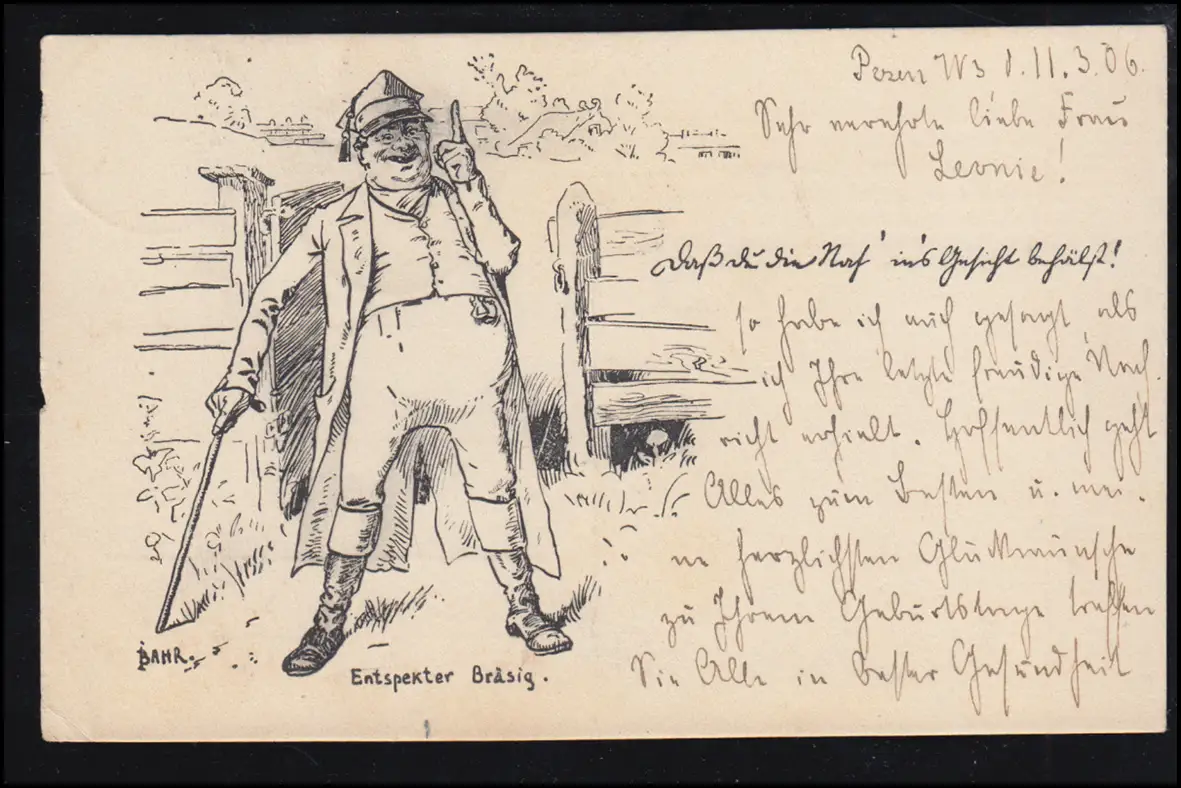 Posen W3 d. 11.3.06.
Sehr verehrte liebe Frau
Leonie!
Daß du die Nas' in's Gesicht behälst!
so habe ich auch gesagt, als
ich Ihre letzte freudige Nach-
richt erhielt. Hoffentlich geht
Alles zum Besten u. mei-
ne herzlichsten Glückwünsche
zu Ihrem Geburtstage treffen
Sie Alle in bester Gesundheit
BAHR.
Entspekter Bräsig.